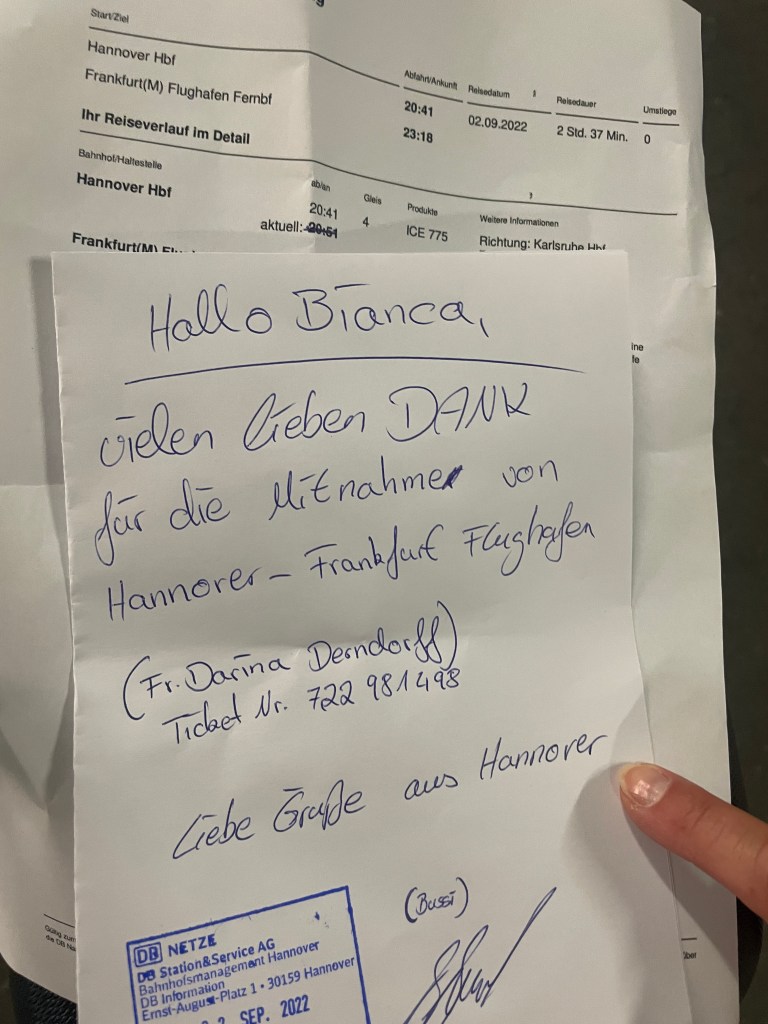 Start/Ziel
Hannover Hbf
Frankfurt(M) Flughafen Fernbf
Abfahrt/Ankunft Reisedatum Reisedauer Umstiege
20:41 02.09.2022 2 Std. 37 Min. 0
23:18
Ihr Reiseverlauf im Detail
Bahnhof/Haltestelle ab/an Gleis Produkte Weitere Informationen
Hannover Hbf 20:41 4 ICE 775 Richtung: Karlsruhe Hbf
aktuell: 20:51
Frankfurt(M)
ine
le
Hallo Bianca,
vielen lieben DANK
für die Mitnahme von
Hannover - Frankfurt Flughafen
(Fr. Darina Derndorff)
Ticket Nr. 722 981498
Liebe Grüße aus Hannover
(Bussi)
DB NETZE
DB Station&Service AG
Bahnhofsmanagement Hannover
DB Information
Ernst-August-Platz 1 · 30159 Hannover
2 SEP. 2022
Gültig zum
die DB